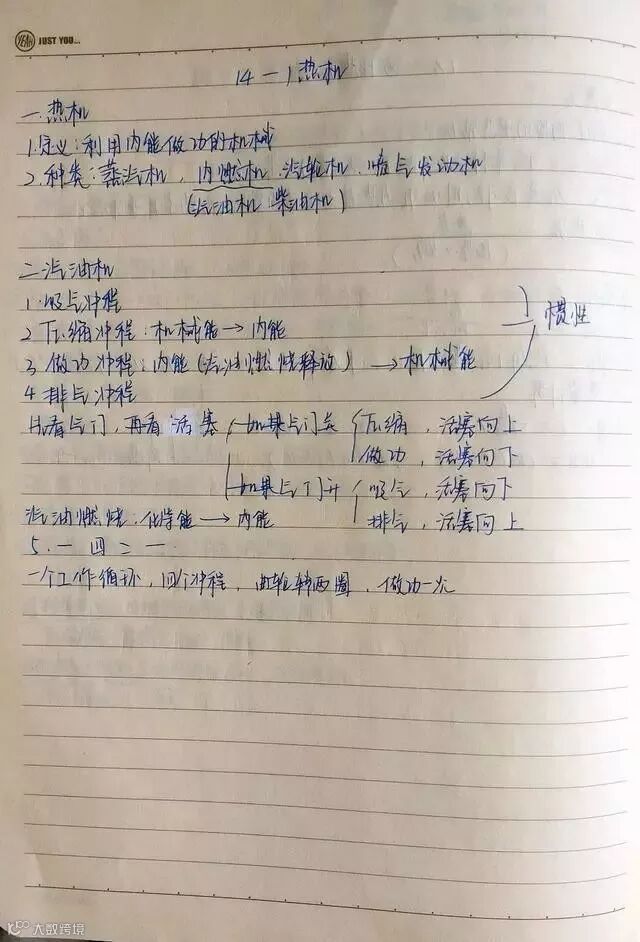 YEAH JUST YOU...
14-1热机
一.热机
1.定义:利用内能做功的机械
2.种类:蒸汽机、内燃机、汽轮机、喷气发动机
(汽油机 柴油机)
二.汽油机
1.吸气冲程
2.压缩冲程:机械能→内能
惯性
3.做功冲程:内能(汽油燃烧释放)→机械能
4.排气冲程
先看气门,再看活塞 如果气门关 压缩,活塞向上
做功,活塞向下
如果气门开 吸气,活塞向下
汽油燃烧:化学能→内能 排气,活塞向上
5.一四二一
一个工作循环,四个冲程,曲轮转两圈,做功一次
大数跨境